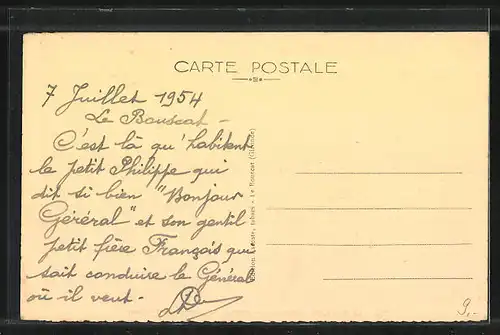 CARTE POSTALE
7 Juillet 1954
Le Bouscat -
C'est là qu'habitent
le petit Philippe qui
dit si bien "Bonjour
Général" et son gentil
petit frère François qui
sait conduire le Général
où il veut -
Le Bouscat (Gironde)
9.-